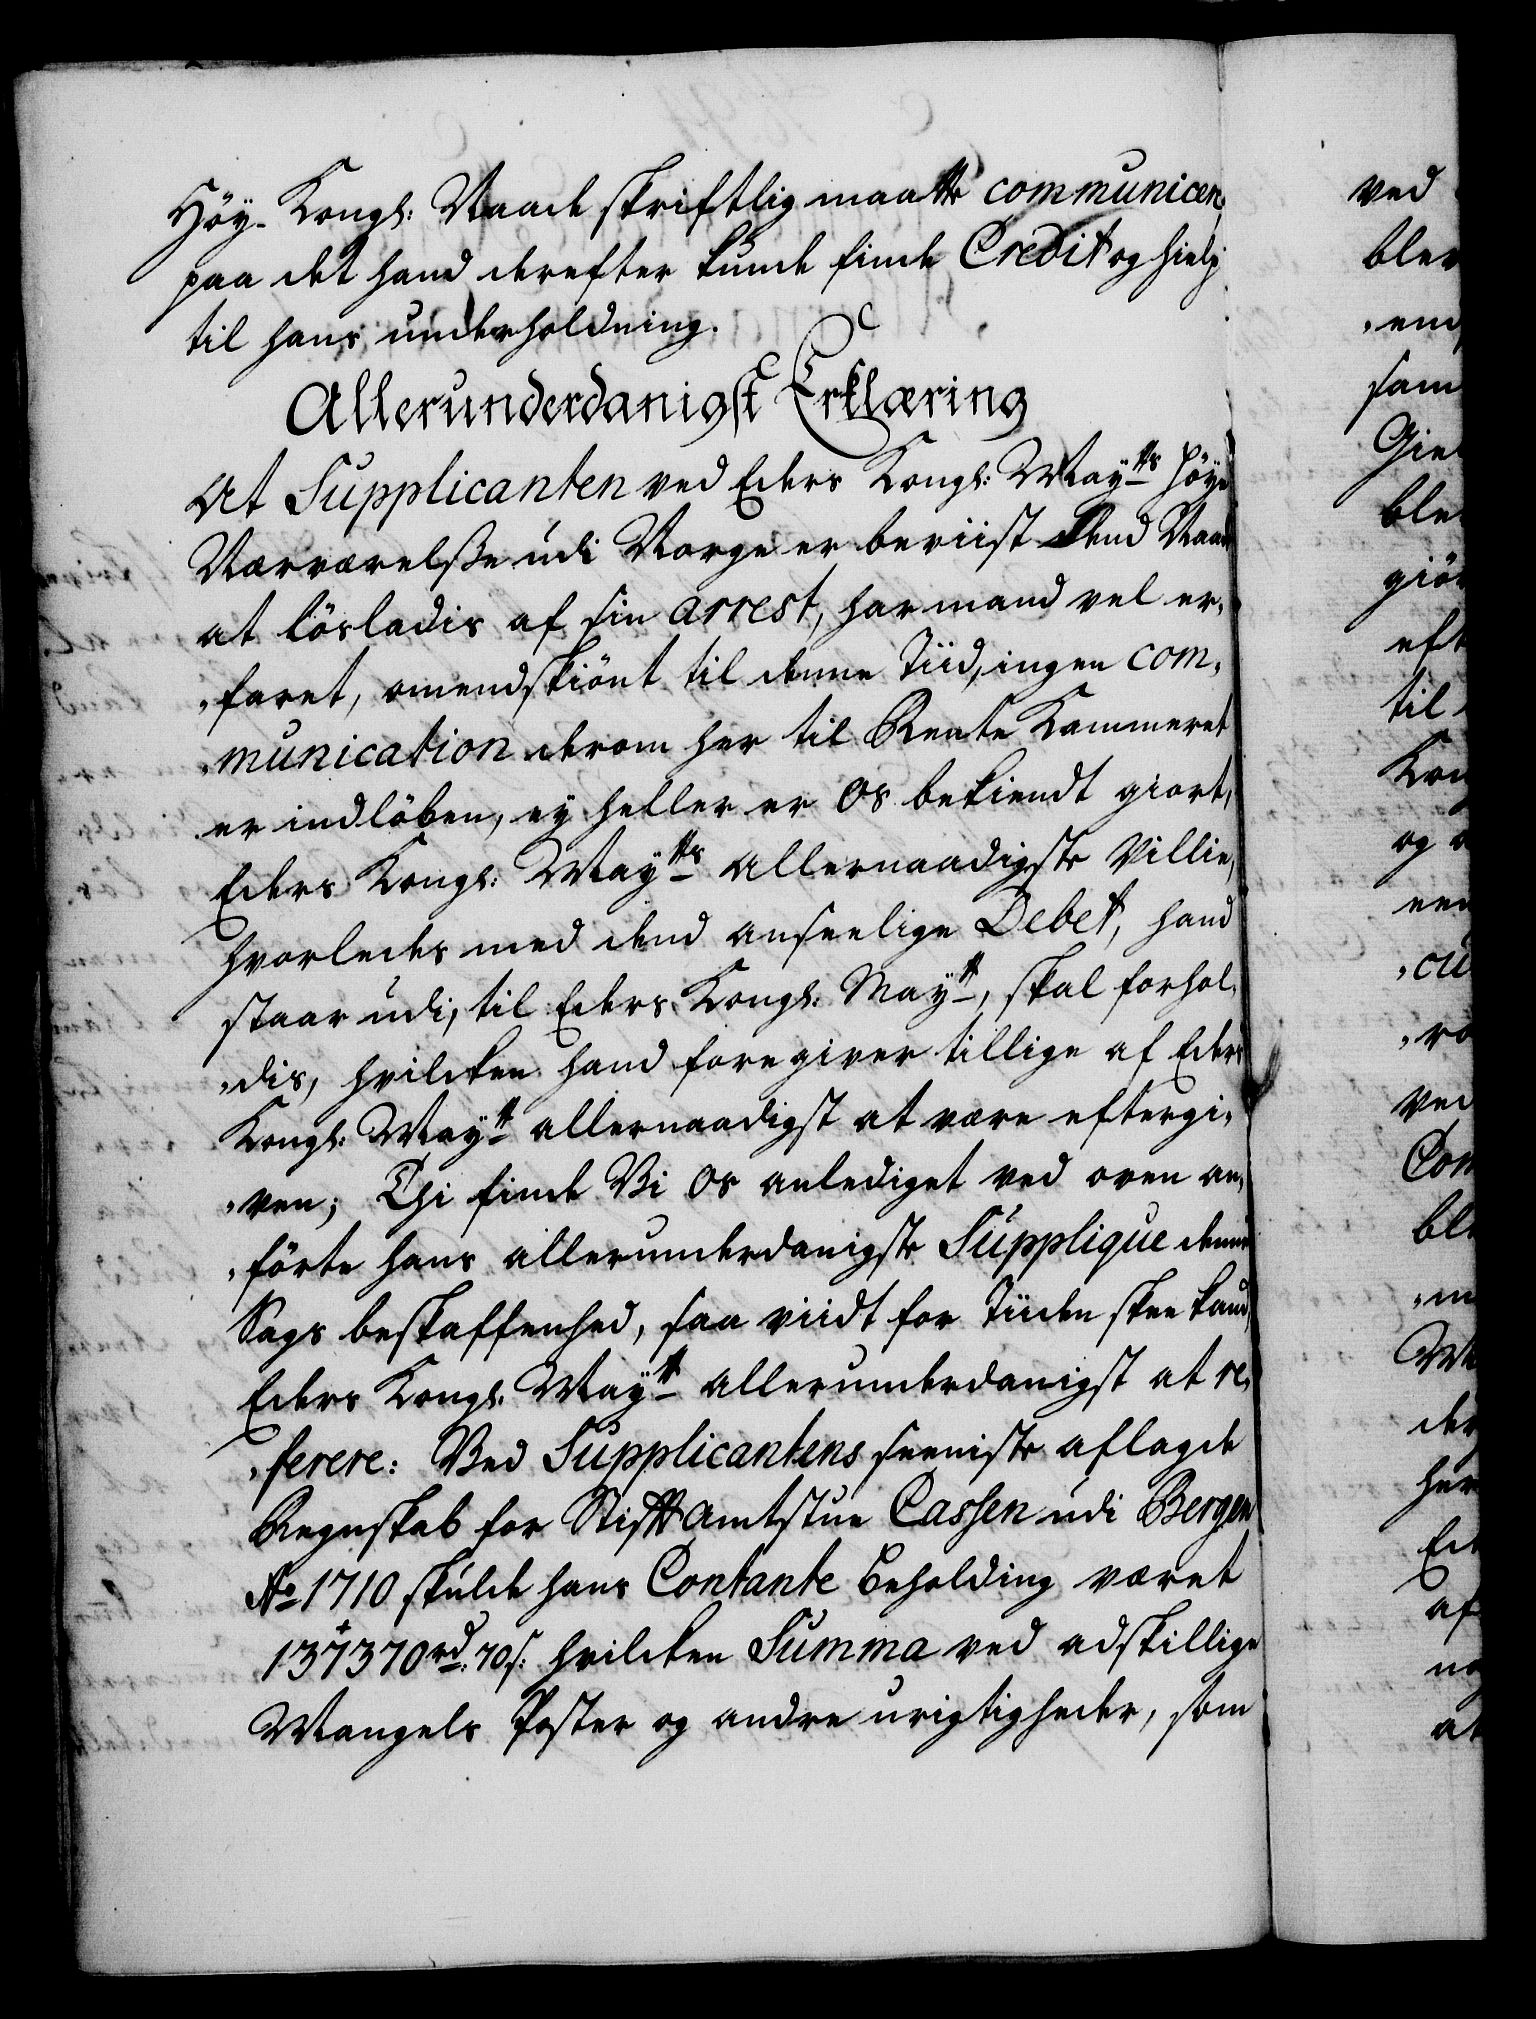 Höy- Kongl: Naade skriftlig maatte communicer,
paa det hand derefter kunde finde Credit og hielp
til hans underholdning.
Allerunderdanigst Erklæring
At Supplicanten ved Eders Kongl: Mayts höye
Nærværelsße udi Norge er beviist dend Naade
at lösladis af sin Arrest, har mand vel er,
,faret, omendskiönt til denne Tiid, ingen com,
,munication derom her til Rente Kammeret
er indlöben, ey heller er Os bekiendt giort,
Eders Kongl: Maytts allernaadigste Villie,
hvorledes med dend anseelige Debet, hand
staar udi, til Eders Kongl: Maytt, skal forhol,
,dis, hvilcken hand foregiver tillige af Eders
Kongl: Maytt allernaadigst at være eftergi,
,ven; Thi finde Vi Os anlediget ved oven an,
,förte hans allerunderdanigste Supplique denne
Sags beskaffenhed, saa viidt for Tiiden skee kand,
Eders Kongl: Maytt allerunderdanigst at re,
,ferere: Ved Supplicantens seeniste aflagde
Regnskab for Stifft Amtstue Cassen udi Bergen
Ao 1710 skulde hans Contante Beholding været
137370 rd: 70 s: hvilcken Summa ved adskillige
Mangels Poster og andre urigtigheder, som
ved
blev
sam
Gie
til
og
ved
Com
her
af
at